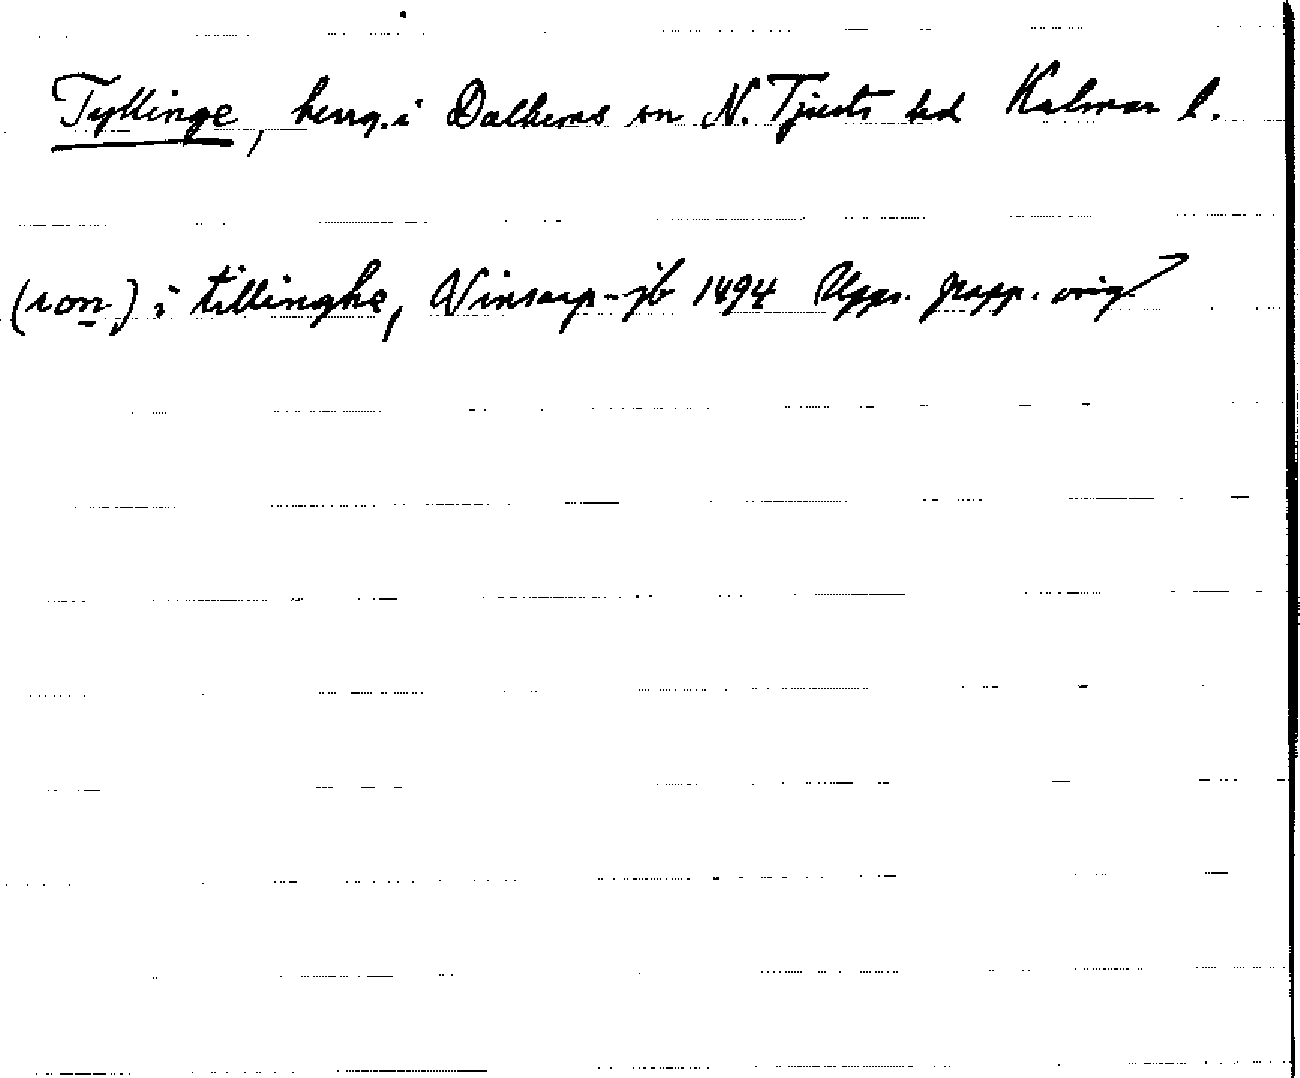 Tyllinge, herrg. i Dalhems sn N. Tjusts hd Kalmar l.
(ion) i tillinghe, Vinsarp-jb 1494 Upps. papp. orig.